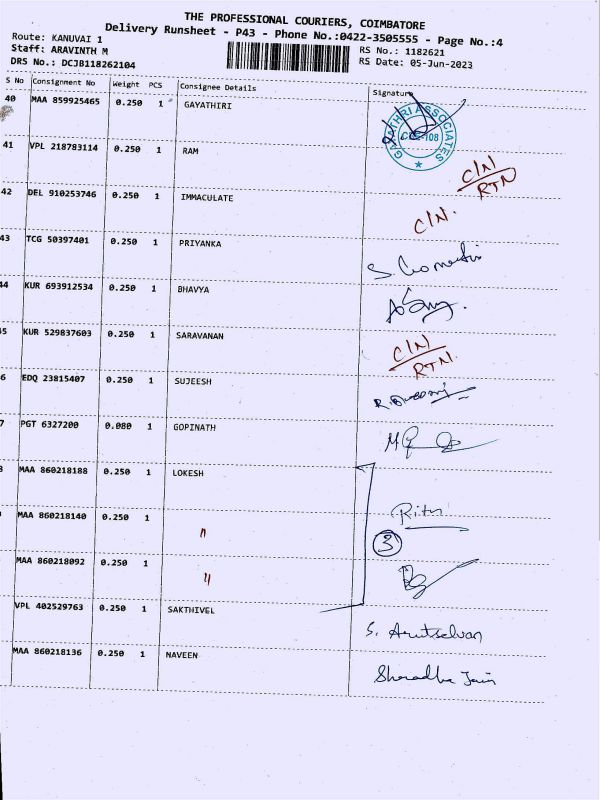 THE PROFESSIONAL COURIERS, COIMBATORE
Delivery Runsheet - P43 - Phone No.:0422-3505555 - Page No.:4
Route: KANUVAI 1
RS No.: 1182621
Staff: ARAVINTH M
RS Date: 05-Jun-2023
DRS No.: DCJB118262104
S No Consignment No Weight PCS Consignee Details Signature
40 MAA 859925465 0.250 1 GAYATHIRI
GAYATHRI ASSOCIATES
41 VPL 218783114 0.250 1 RAM C/N
RTN
42 DEL 910253746 0.250 1 IMMACULATE C/N.
43 TCG 50397401 0.250 1 PRIYANKA
44 KUR 693912534 0.250 1 BHAVYA
5 KUR 529837603 0.250 1 SARAVANAN C/N
RTN.
6 EDQ 23815407 0.250 1 SUJEESH
7 PGT 6327200 0.080 1 GOPINATH
MAA 860218188 0.250 1 LOKESH
MAA 860218140 0.250 1 "
3
MAA 860218092 0.250 1 "
VPL 402529763 0.250 1 SAKTHIVEL S. Arutselvan
MAA 860218136 0.250 1 NAVEEN Sharadha Jain